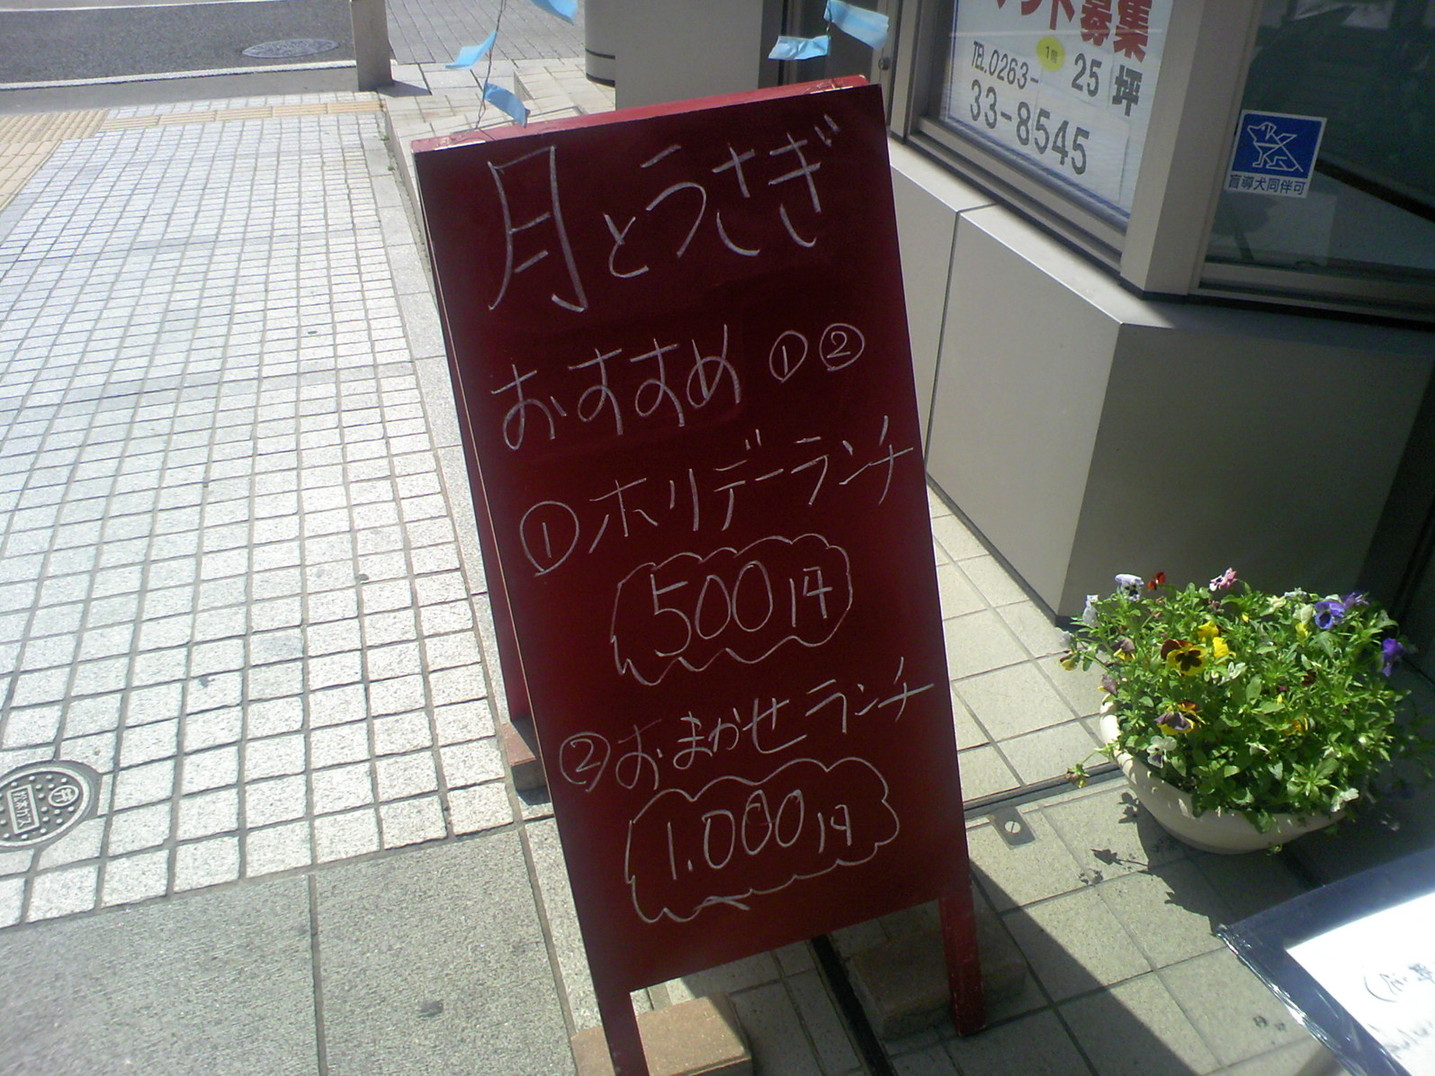 月とうさぎ
おすすめ ① ②
① ホリデーランチ
500円
② おまかせランチ
1.000円
ント募集
TEL.0263-
1階
25坪
33-8545
盲導犬同伴可